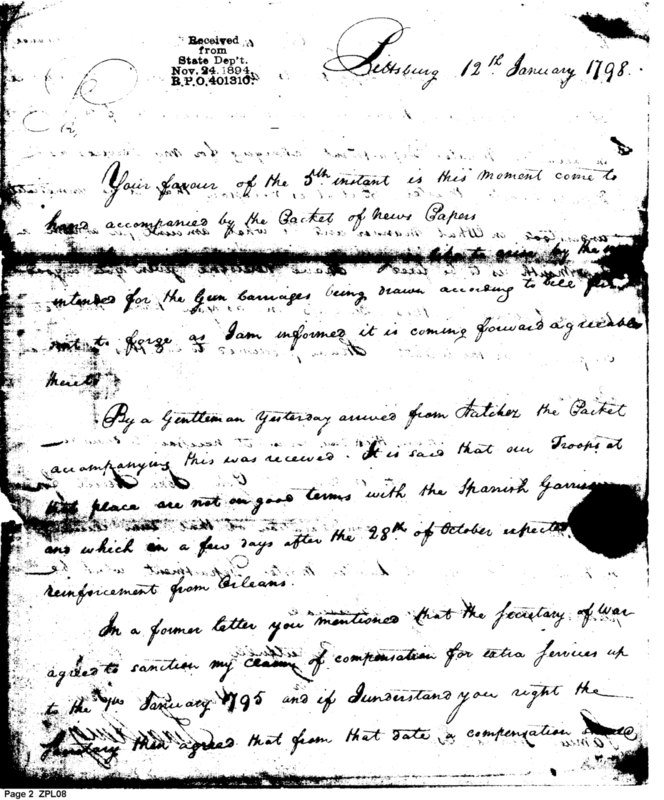 Received
from
State Dep't.
Nov. 24. 1894.
B.P.O. 401310.
Pittsburg 12th January 1798.
Your favour of the 5th instant is this moment come to
hand accompanied by the Packet of News Papers
like to by the
intended for the Gun Carriages being drawn according to bill
not to forge as I am informed it is coming forward agreeable
thereto
By a Gentleman yesterday arrived from Natchez the Packet
accompanying this was received. It is said that our Troops at
that place are not on good terms with the Spanish Garrison
and which in a few days after the 28th of October expected
reinforcement from Orleans.
In a former letter you mentioned that the Secretary of War
agreed to sanction my claim of compensation for extra services up
to the January 1795 and if I understand you right the
Secretary then agreed that from that date a compensation
Page 2 ZPL08